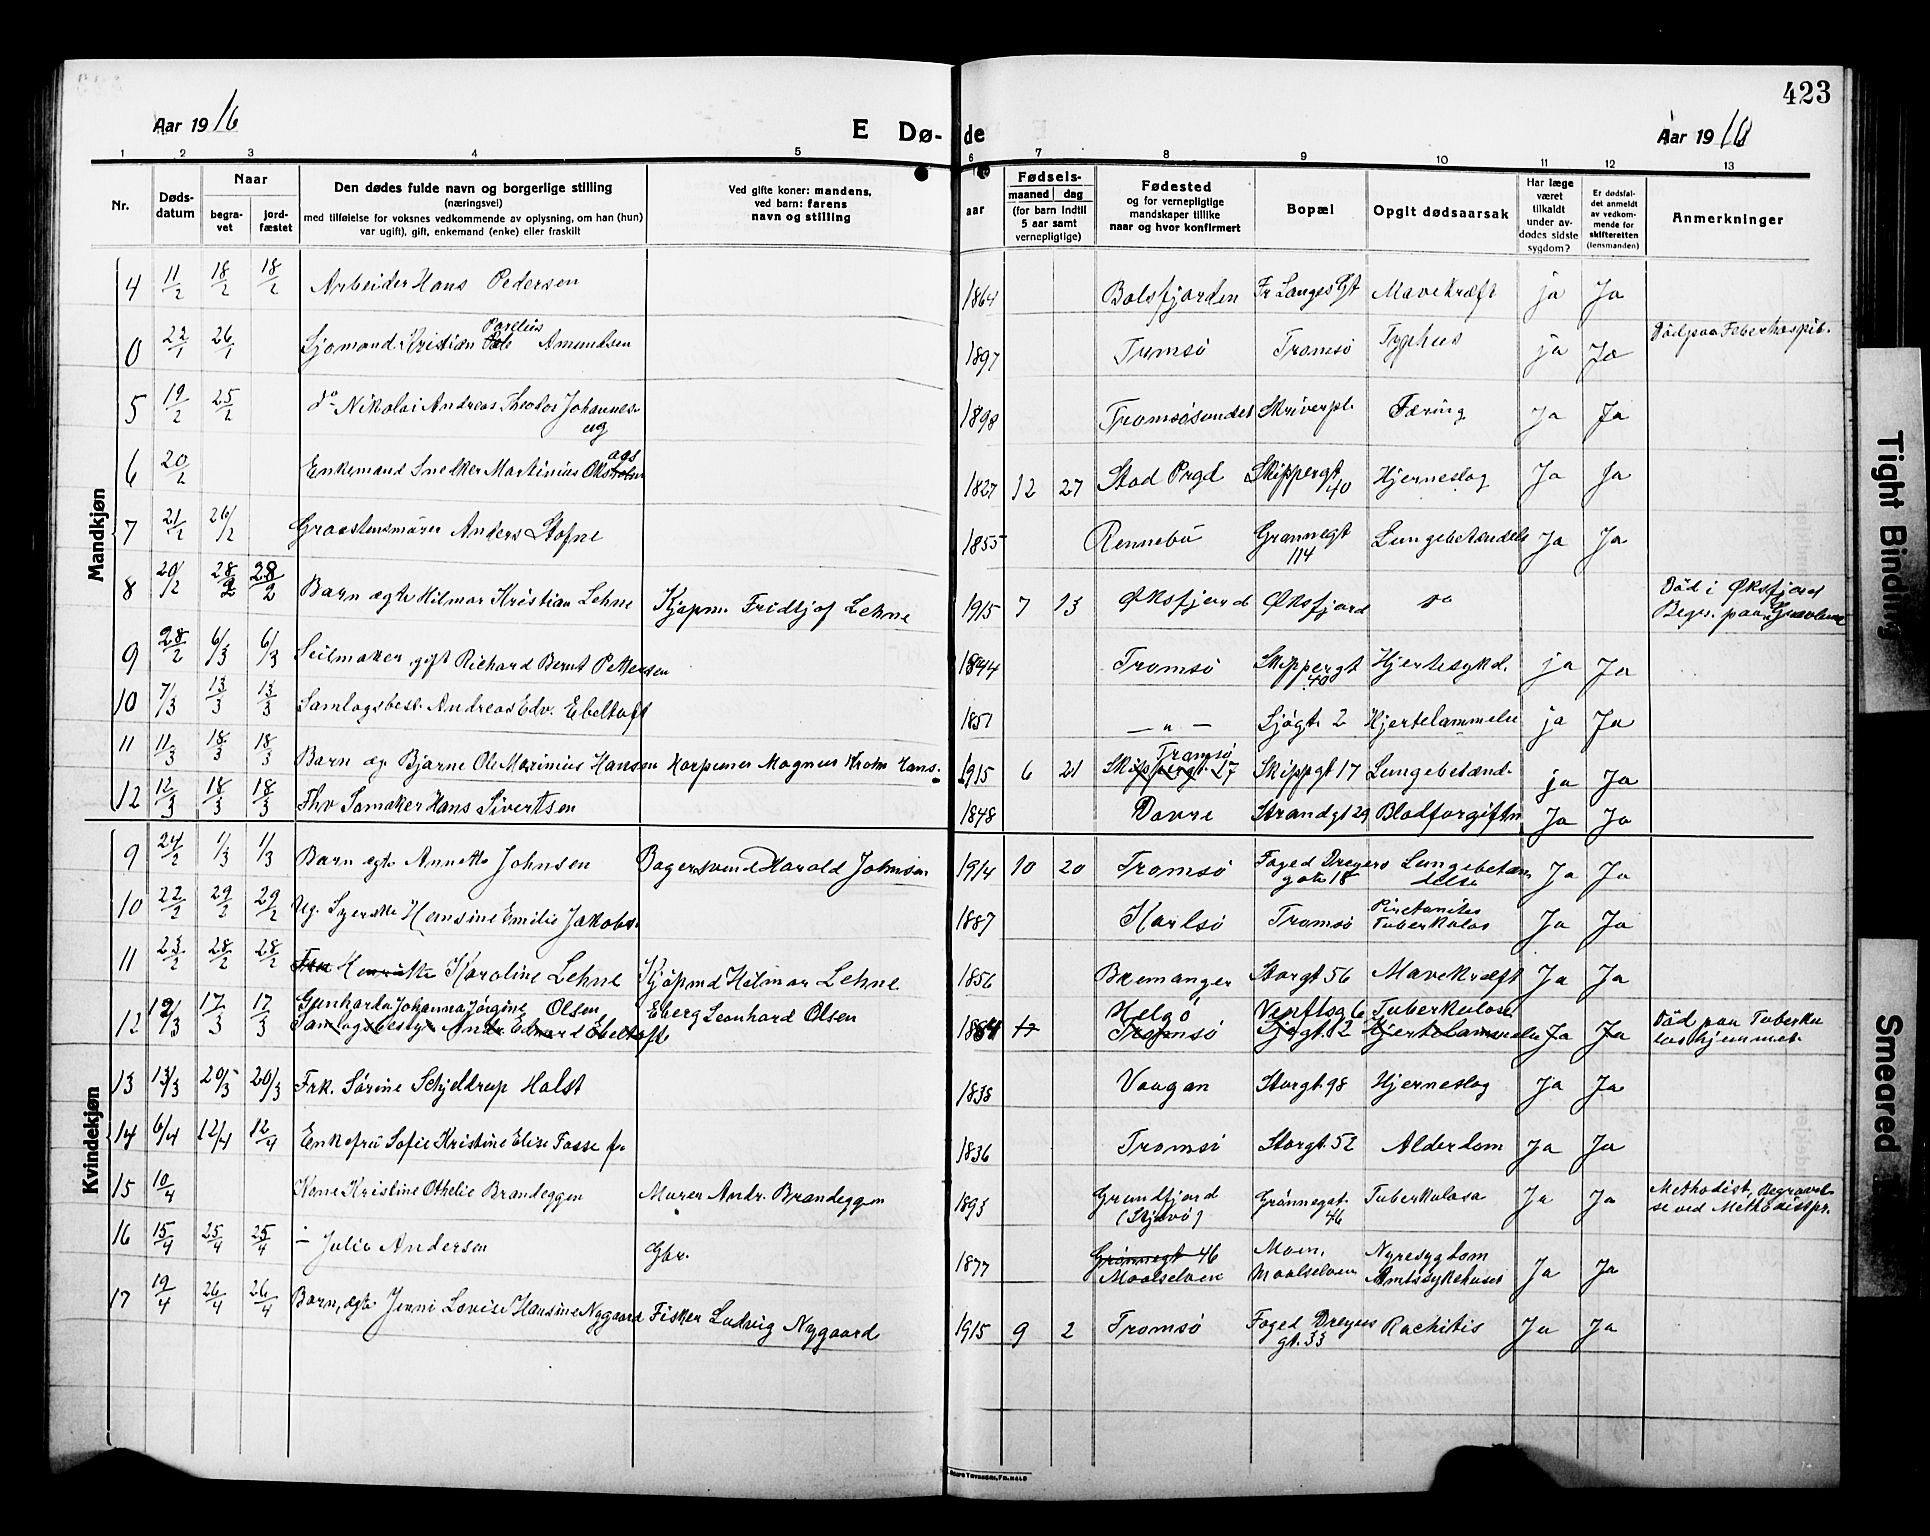 423
Aar 1916 E Dø- de Aar 1916
1 2 3 3 4 5 6 7 8 9 10 11 12 13
Nr. Døds-datum Naar begra-vet jord-fæstet Den dødes fulde navn og borgerlige stilling (næringsvei) med tilføielse for voksnes vedkommende av oplysning, om han (hun) var ugift), gift, enkemand (enke) eller fraskilt Ved gifte koner: mandens, ved barn: farens navn og stilling aar Fødsels- maaned dag (for barn indtil 5 aar samt vernepligtige) Fødested og for vernepligtige mandskaper tillike naar og hvor konfirmert Bopæl Opgit dødsaarsak Har læge været tilkaldt under av-dødes sidste sygdom? Er dødsfal-det anmeldt av vedkom-mende for skifteretten (lensmanden) Anmerkninger
Mandkjøn
4 11/2 18/2 18/2 Arbeider Hans Pedersen 1864 Balsfjorden Fr Langes Gt Mavekræft ja Ja
0 22/1 26/1 Sjømand Kristian Parelius Amundsen 1897 Tromsø Tromsø Typhus ja Ja Död paa Feberhospit.
5 19/2 25/2 do Nikolai Andreas Theodor Johannes. ug 1898 Tromsøsundet Skriverpl. Tæring Ja Ja
6 20/2 Enkemand Snekker Martinius Oksaas 1827 12 27 Stod Prgd Skippergt 40 Hjerneslag Ja Ja
7 21/2 26/2 Graastensmurer Anders Stofne 1855 Rennebu Grønnegt 114 Lungebetændels Ja Ja
8 20/2 28/2 28/2 Barn ægte Hilmar Kristian Lehne Kjøpm. Fridtjof Lehne 1915 7 13 Øksfjord Øksfjord do Död i Øksfjord Begr. paa Gravlund
9 28/2 6/3 6/3 Seilmaker, gift Richard Bernt Pettersen 1844 Tromsø Skippergt 40 Hjertesykd. ja Ja
10 7/3 13/3 13/3 Samlagsbest. Andreas Edv. Ebeltoft 1851 — " — Sjøgt. 2 Hjertelammelse ja Ja
11 11/3 18/3 18/3 Barn æg. Bjarne Ole Marinius Hansen Harpuner Magnus Krohn Hans. 1915 6 21 Tromsø Skippergt. 27 Skippgt 17 Lungebetænd. ja Ja
12 12/3 18/3 18/3 Fhv Samaker Hans Sivertsen 1848 Dovre Strandgt 29 Blodforgiftn Ja Ja
Kvindekjøn
9 24/2 1/3 1/3 Barn ægte Annette Johnsen Bagersvend Harald Johnsen 1914 10 20 Tromsø Foged Dreyers gate 18 Lungebetændelse Ja Ja
10 22/2 29/2 29/2 Ug. Syerske Hansine Emilie Jakobs. 1887 Karlsø Tromsø Tuberkulos Ja Ja
11 23/2 28/2 28/2 Fru Henriette Karoline Lehne Kjøpmd Hilmar Lehne 1856 Bremanger Storgt 56 Mavekræft Ja Ja
12 12/3 17/3 17/3 Gunharda Johanna Jørgine Olsen Samlagsbesty Andr. Edvard Ebeltoft Leonhard Olsen 1884 Helgø Tromsø Venftsg 6 Sjøgt. 2 Tuberkulose Hjertelammelse Ja Ja Död paa Tuberkuloshjemmet.
13 13/3 20/3 20/3 Frk. Sørine Schjeldrup Holst 1838 Vaagan Storgt 98 Hjerneslag Ja Ja
14 6/4 12/4 12/4 Enkefru Sofie Kristine Elise Fosse f. 1836 Tromsø Storgt. 52 Alderdom Ja Ja
15 10/4 Kone Kristine Othelie Brandeggen Murer Andr. Brandeggen 1893 Grundfjord (Skjervø) Grønnegat. 46 Tuberkulosa Ja Ja Methodist, Begravelse ved Methodistpr.
16 15/4 25/4 25/4 — Julie Andersen Gbr. 1877 Grønnegt 46 Maalselven Moen, Maalselven Nyresygdom Amtssykehuset Ja Ja
17 19/4 26/4 26/4 Barn, ægte Jenni Lovise Hansine Nygaard Fisker Ludvig Nygaard 1915 9 2 Tromsø Foged Dreyers gt. 33 Rachitis Ja Ja
Tight Binding
Smeared